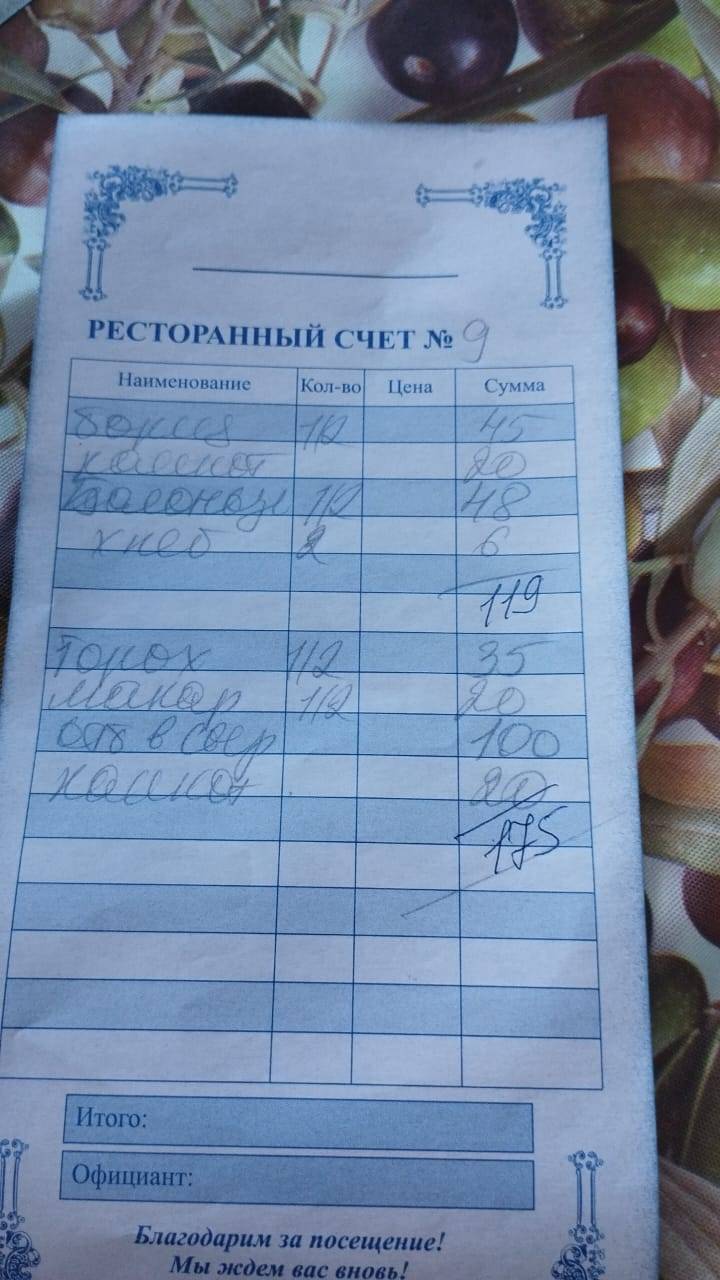 РЕСТОРАННЫЙ СЧЕТ № 9
Наименование Кол-во Цена Сумма
борщ 1/2 45
компот 20
Болоньез 1/2 48
хлеб 2 6
119
Горох 1/2 35
макар 1/2 20
отб в сыр 100
компот 20
175
Итого:
Официант:
Благодарим за посещение!
Мы ждем вас вновь!